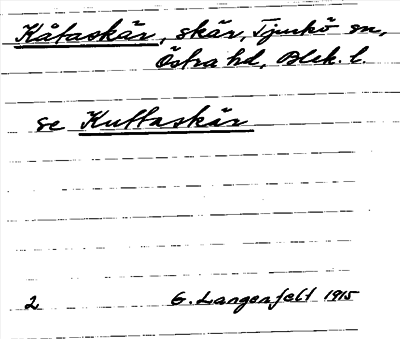 Kåtaskär, skär, Tjurkö sn,
Östra hd, Blek. l.
se Kuttaskär
2 G. Langenfelt 1915